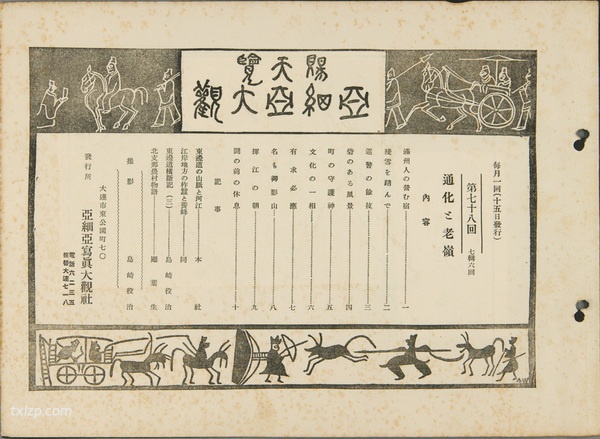 賜天覽
亞細亞大觀
每月一回(十五日發行)
第七十八回 七輯六回
通化と老嶺
內容
滿州人の營む宿 一
殘雪を踏んで 二
巡警の餘技 三
砦のある風景 四
町の守護神 五
文化の一相 六
有求必應 七
名も御影山 八
渾江の朝 九
關の前の休息 十
記事
東邊道の山脈と河江 本社
江岸地方の柞蠶と養蜂 同
東邊道橫斷記(三) 島崎役治
北支那農村物語 葉生
撮影 島崎役治
發行所 大連市東公園町七〇
亞細亞寫眞大觀社
電話六二三五
振替大連七一八
txlzp.com